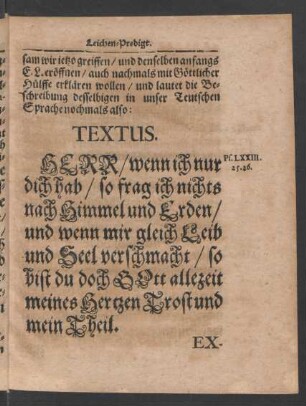 Leichen-Predigt.
sam wir ietzo greiffen / und denselben anfangs
E. L. eröffnen / auch nachmals mit Göttlicher
Hülffe erklären wollen / und lautet die Be-
schreibung desselbigen in unser Teutschen
Sprache nochmals also:
TEXTUS.
HERR / wenn ich nur
dich hab / so frag ich nichts
nach Himmel und Erden /
und wenn mir gleich Leib
und Seel verschmacht / so
bist du doch GOtt allezeit
meines Hertzen Trost und
mein Theil.
Ps. LXXIII.
25.26.
EX-